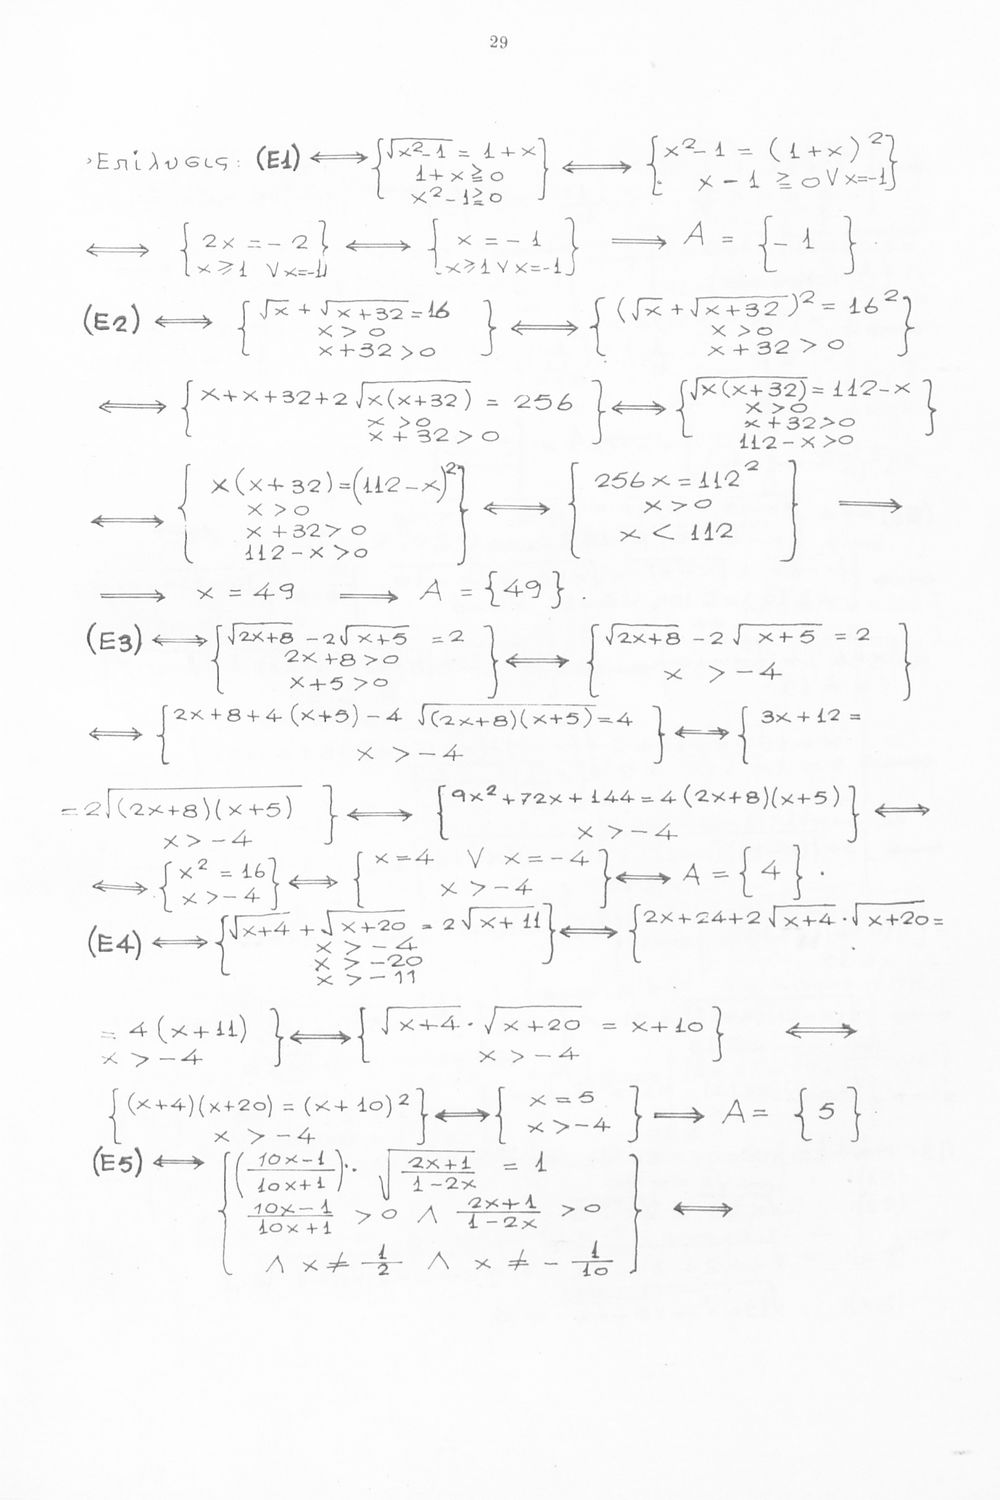 29
Ἐπίλυσις: (E1) ⟺ { √x²-1 = 1+x, 1+x ≧ 0, x²-1 ≧ 0 } ⟺ { x²-1 = (1+x)², x-1 ≧ 0 ∨ x=-1 }
⟺ { 2x = -2, x⩾1 ∨ x=-1 } ⟺ { x = -1, x⩾1 ∨ x=-1 } ⟹ A = {-1}.
(E2) ⟺ { √x + √x+32 = 16, x > 0, x+32 > 0 } ⟺ { (√x + √x+32)² = 16², x > 0, x+32 > 0 }
⟺ { x+x+32+2√x(x+32) = 256, x > 0, x+32 > 0 } ⟺ { √x(x+32) = 112-x, x > 0, x+32 > 0, 112-x > 0 }
⟺ { x(x+32) = (112-x)², x > 0, x+32 > 0, 112-x > 0 } ⟺ { 256x = 112², x > 0, x < 112 } ⟹
⟹ x = 49 ⟹ A = {49}.
(E3) ⟺ { √2x+8 - 2√x+5 = 2, 2x+8 > 0, x+5 > 0 } ⟺ { √2x+8 - 2√x+5 = 2, x > -4 }
⟺ { 2x+8+4(x+5) - 4√(2x+8)(x+5) = 4, x > -4 } ⟺ { 3x+12 =
= 2√(2x+8)(x+5), x > -4 } ⟺ { 9x²+72x+144 = 4(2x+8)(x+5), x > -4 } ⟺
⟺ { x² = 16, x > -4 } ⟺ { x=4 ∨ x=-4, x > -4 } ⟺ A = {4}.
(E4) ⟺ { √x+4 + √x+20 = 2√x+11, x > -4, x > -20, x > -11 } ⟺ { 2x+24+2√x+4 · √x+20 =
= 4(x+11), x > -4 } ⟺ { √x+4 · √x+20 = x+10, x > -4 } ⟺
{ (x+4)(x+20) = (x+10)², x > -4 } ⟺ { x = 5, x > -4 } ⟹ A = {5}
(E5) ⟺ { (10x-1/10x+1) · √2x+1/1-2x = 1
10x-1/10x+1 > 0 ∧ 2x+1/1-2x > 0 ⟺
∧ x ≠ 1/2 ∧ x ≠ - 1/10 }